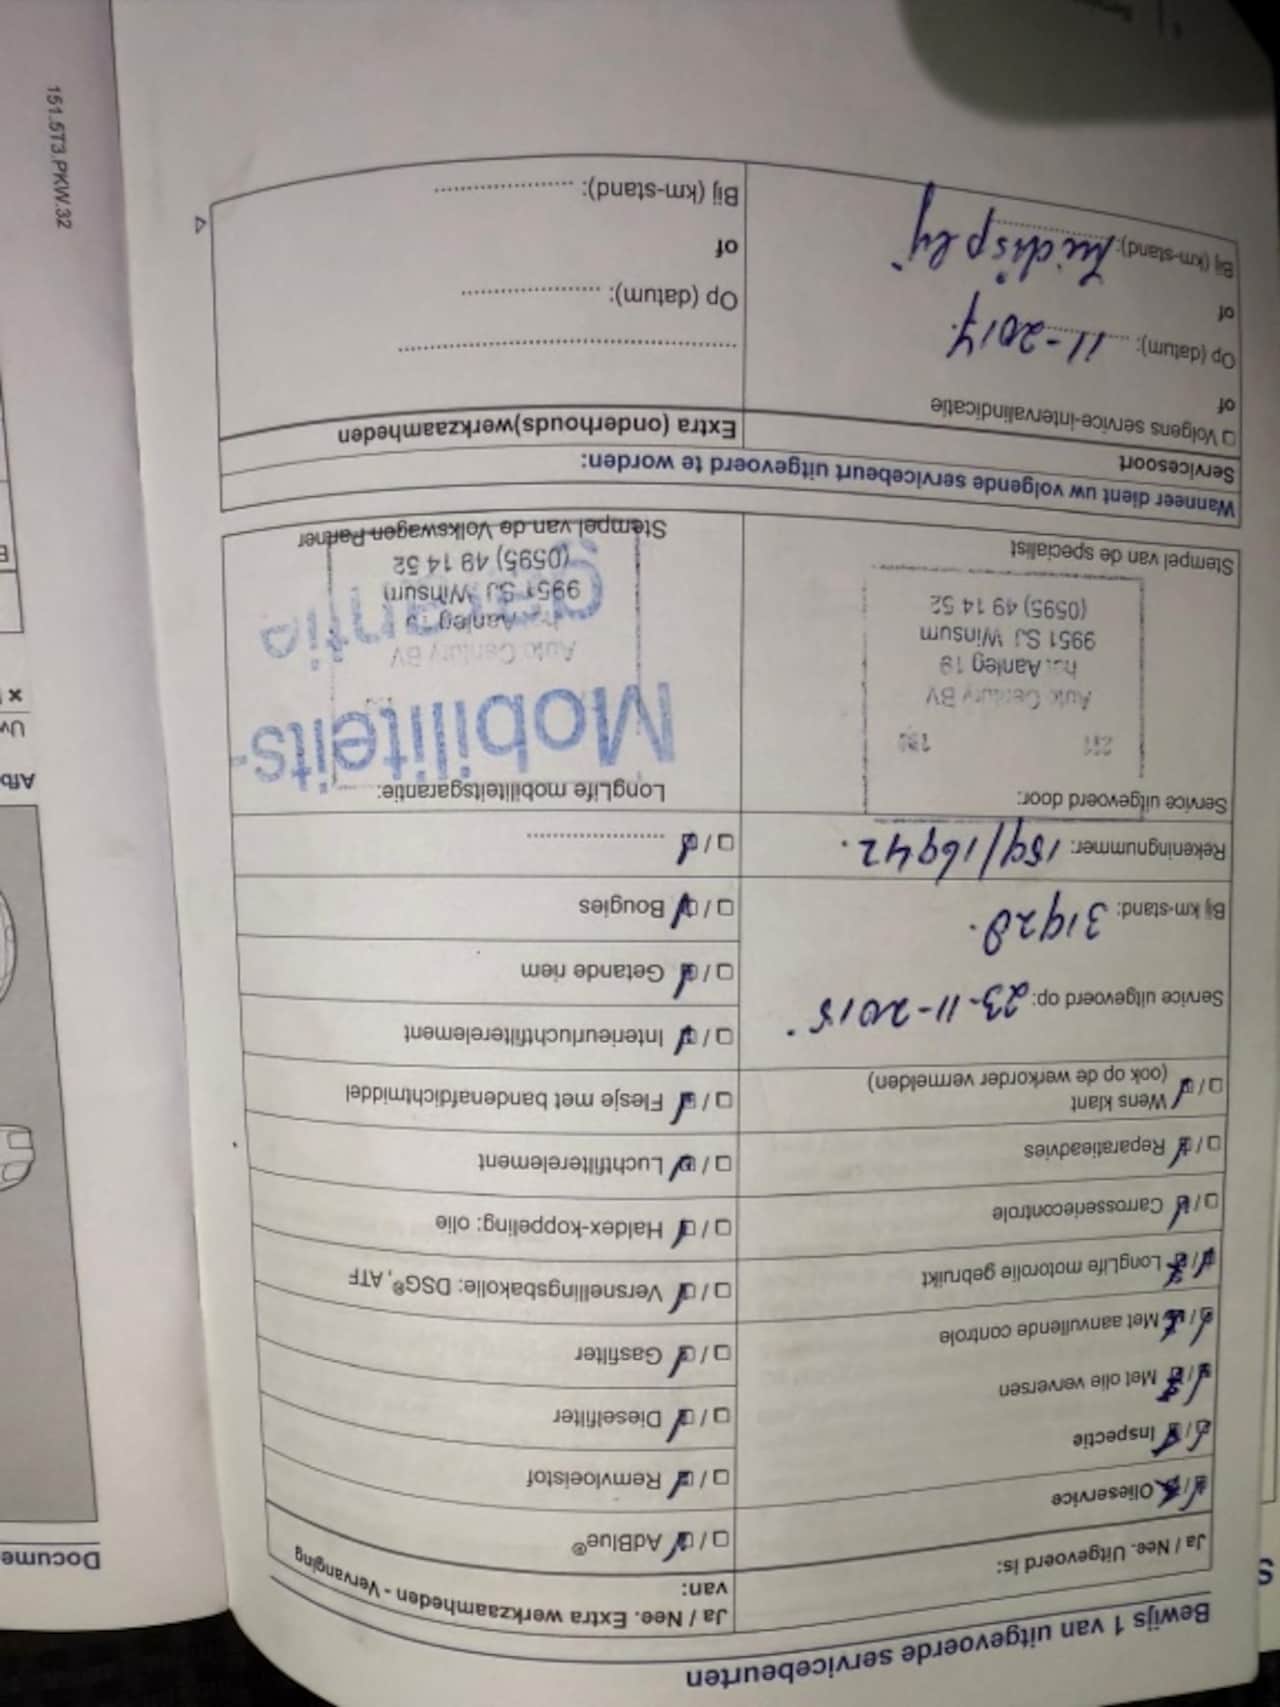 Bewijs 1 van uitgevoerde servicebeurten
Ja / Nee. Uitgevoerd is:
Olieservice
Inspectie
Met olie verversen
Met aanvullende controle
LongLife motorolie gebruikt
Carrosseriecontrole
Reparatieadvies
Wens klant
(ook op de werkorder vermelden)
Service uitgevoerd op: 23-11-2015
Bij km-stand: 31928.
Rekeningnummer: 159/16942.
Service uitgevoerd door:
Auto Century BV
het Aanleg 19
9951 SJ Winsum
(0595) 49 14 52
Stempel van de specialist
Ja / Nee. Extra werkzaamheden - Vervanging
van:
AdBlue®
Remvloeistof
Dieselfilter
Gasfilter
Versnellingsbakolie: DSG®, ATF
Haldex-koppeling: olie
Luchtfilterelement
Flesje met bandenafdichtmiddel
Interieurluchtfilterelement
Getande riem
Bougies
....................
LongLife mobiliteitsgarantie:
Mobiliteits-
garantie
Auto Century BV
Aanleg
9951 SJ Winsum
(0595) 49 14 52
Stempel van de Volkswagen Partner
Wanneer dient uw volgende servicebeurt uitgevoerd te worden:
Servicesoort
Volgens service-intervalindicatie
of
Op (datum): 11-2017.
of
Bij (km-stand):
Extra (onderhouds)werkzaamheden
................................................
Op (datum): ....................
of
Bij (km-stand): ....................
151.5T3.PKW.32
Docume
Afb
Uw